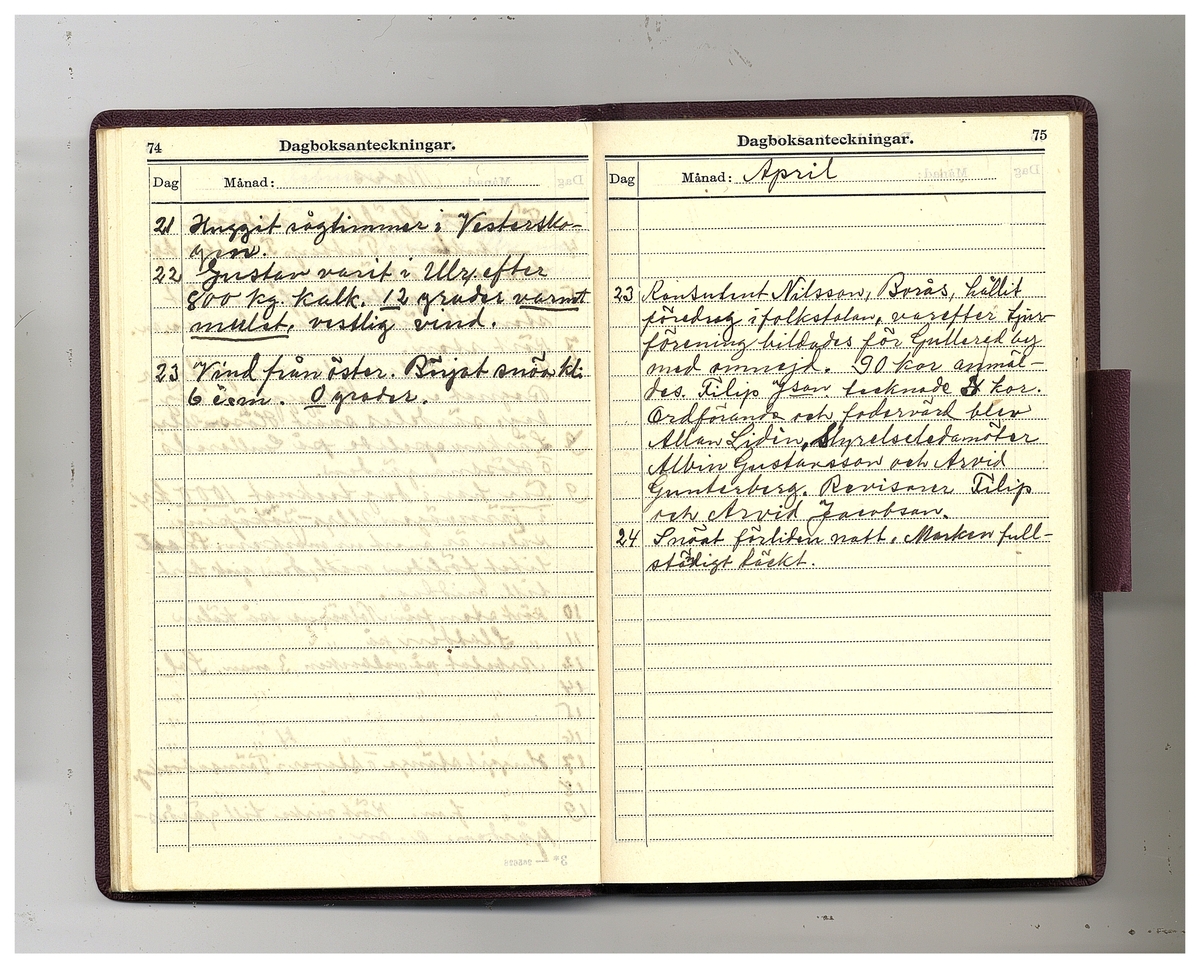 74
Dagboksanteckningar.
Dag
Månad:
21 Huggit sågtimmer i Vestersko-
gen.
22 Gustav varit i Ulr. efter
800 kg. kalk. 12 grader varmt
mulet, vestlig vind.
23 Vind från öster. Börjat snöa kl.
6 e.m. 0 grader.
75
Dagboksanteckningar.
Dag
Månad: April
23 Konsulent Nilsson, Borås, hållit
föredrag i folkskolan, varefter tjur-
förening bildades för Gullered by
med omnejd. 90 kor anmäl-
des. Filip Json tecknade kor.
Ordförande och fodervärd blev
Allan Lidén, Styrelseledamöter
Albin Gustavsson och Arvid
Gunterberg. Revisorer Filip
och Arvid Jacobson.
24 Snöat förliden natt. Marken full-
ständigt täckt.